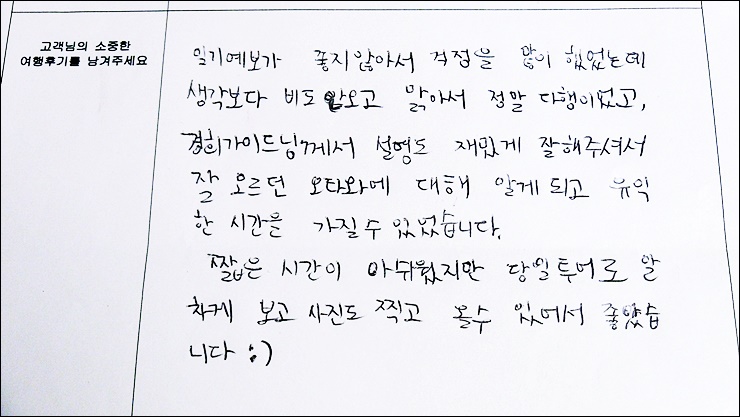 고객님의 소중한
여행후기를 남겨주세요
일기예보가 좋지않아서 걱정을 많이 했었는데
생각보다 비도 안오고 맑아서 정말 다행이었고,
경희가이드님께서 설명도 재밌게 잘해주셔서
잘 모르던 오타와에 대해 알게되고 유익
한 시간을 가질수 있었습니다.
짧은 시간이 아쉬웠지만 당일투어로 알
차게 보고 사진도 찍고 올수 있어서 좋았습
니다 :)